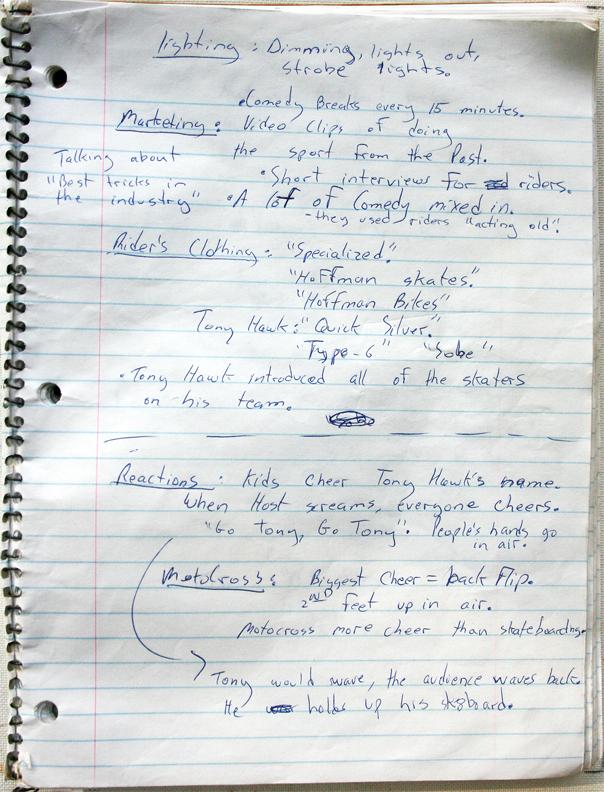 Lighting: Dimming, lights out,
strobe lights.
• Comedy Breaks every 15 minutes.
Marketing: Video clips of doing
the sport from the Past.
Talking about
"Best tricks in
the industry"
• Short interviews for riders.
• A lot of Comedy mixed in.
- they used riders "acting old".
Rider's Clothing: "Specialized".
"Hoffman skates."
"Hoffman Bikes"
Tony Hawk: "Quick Silver."
"Type-6" "Sobe"
• Tony Hawk introduced all of the skaters
on his team.
Reactions: Kids cheer Tony Hawk's name.
When Host screams, everyone cheers.
"Go Tony, Go Tony". People's hands go
in air.
Motocross: Biggest Cheer = back flip.
2ND feet up in air.
Motocross more cheer than skateboarding.
Tony would wave, the audience waves back.
He holds up his sk8board.